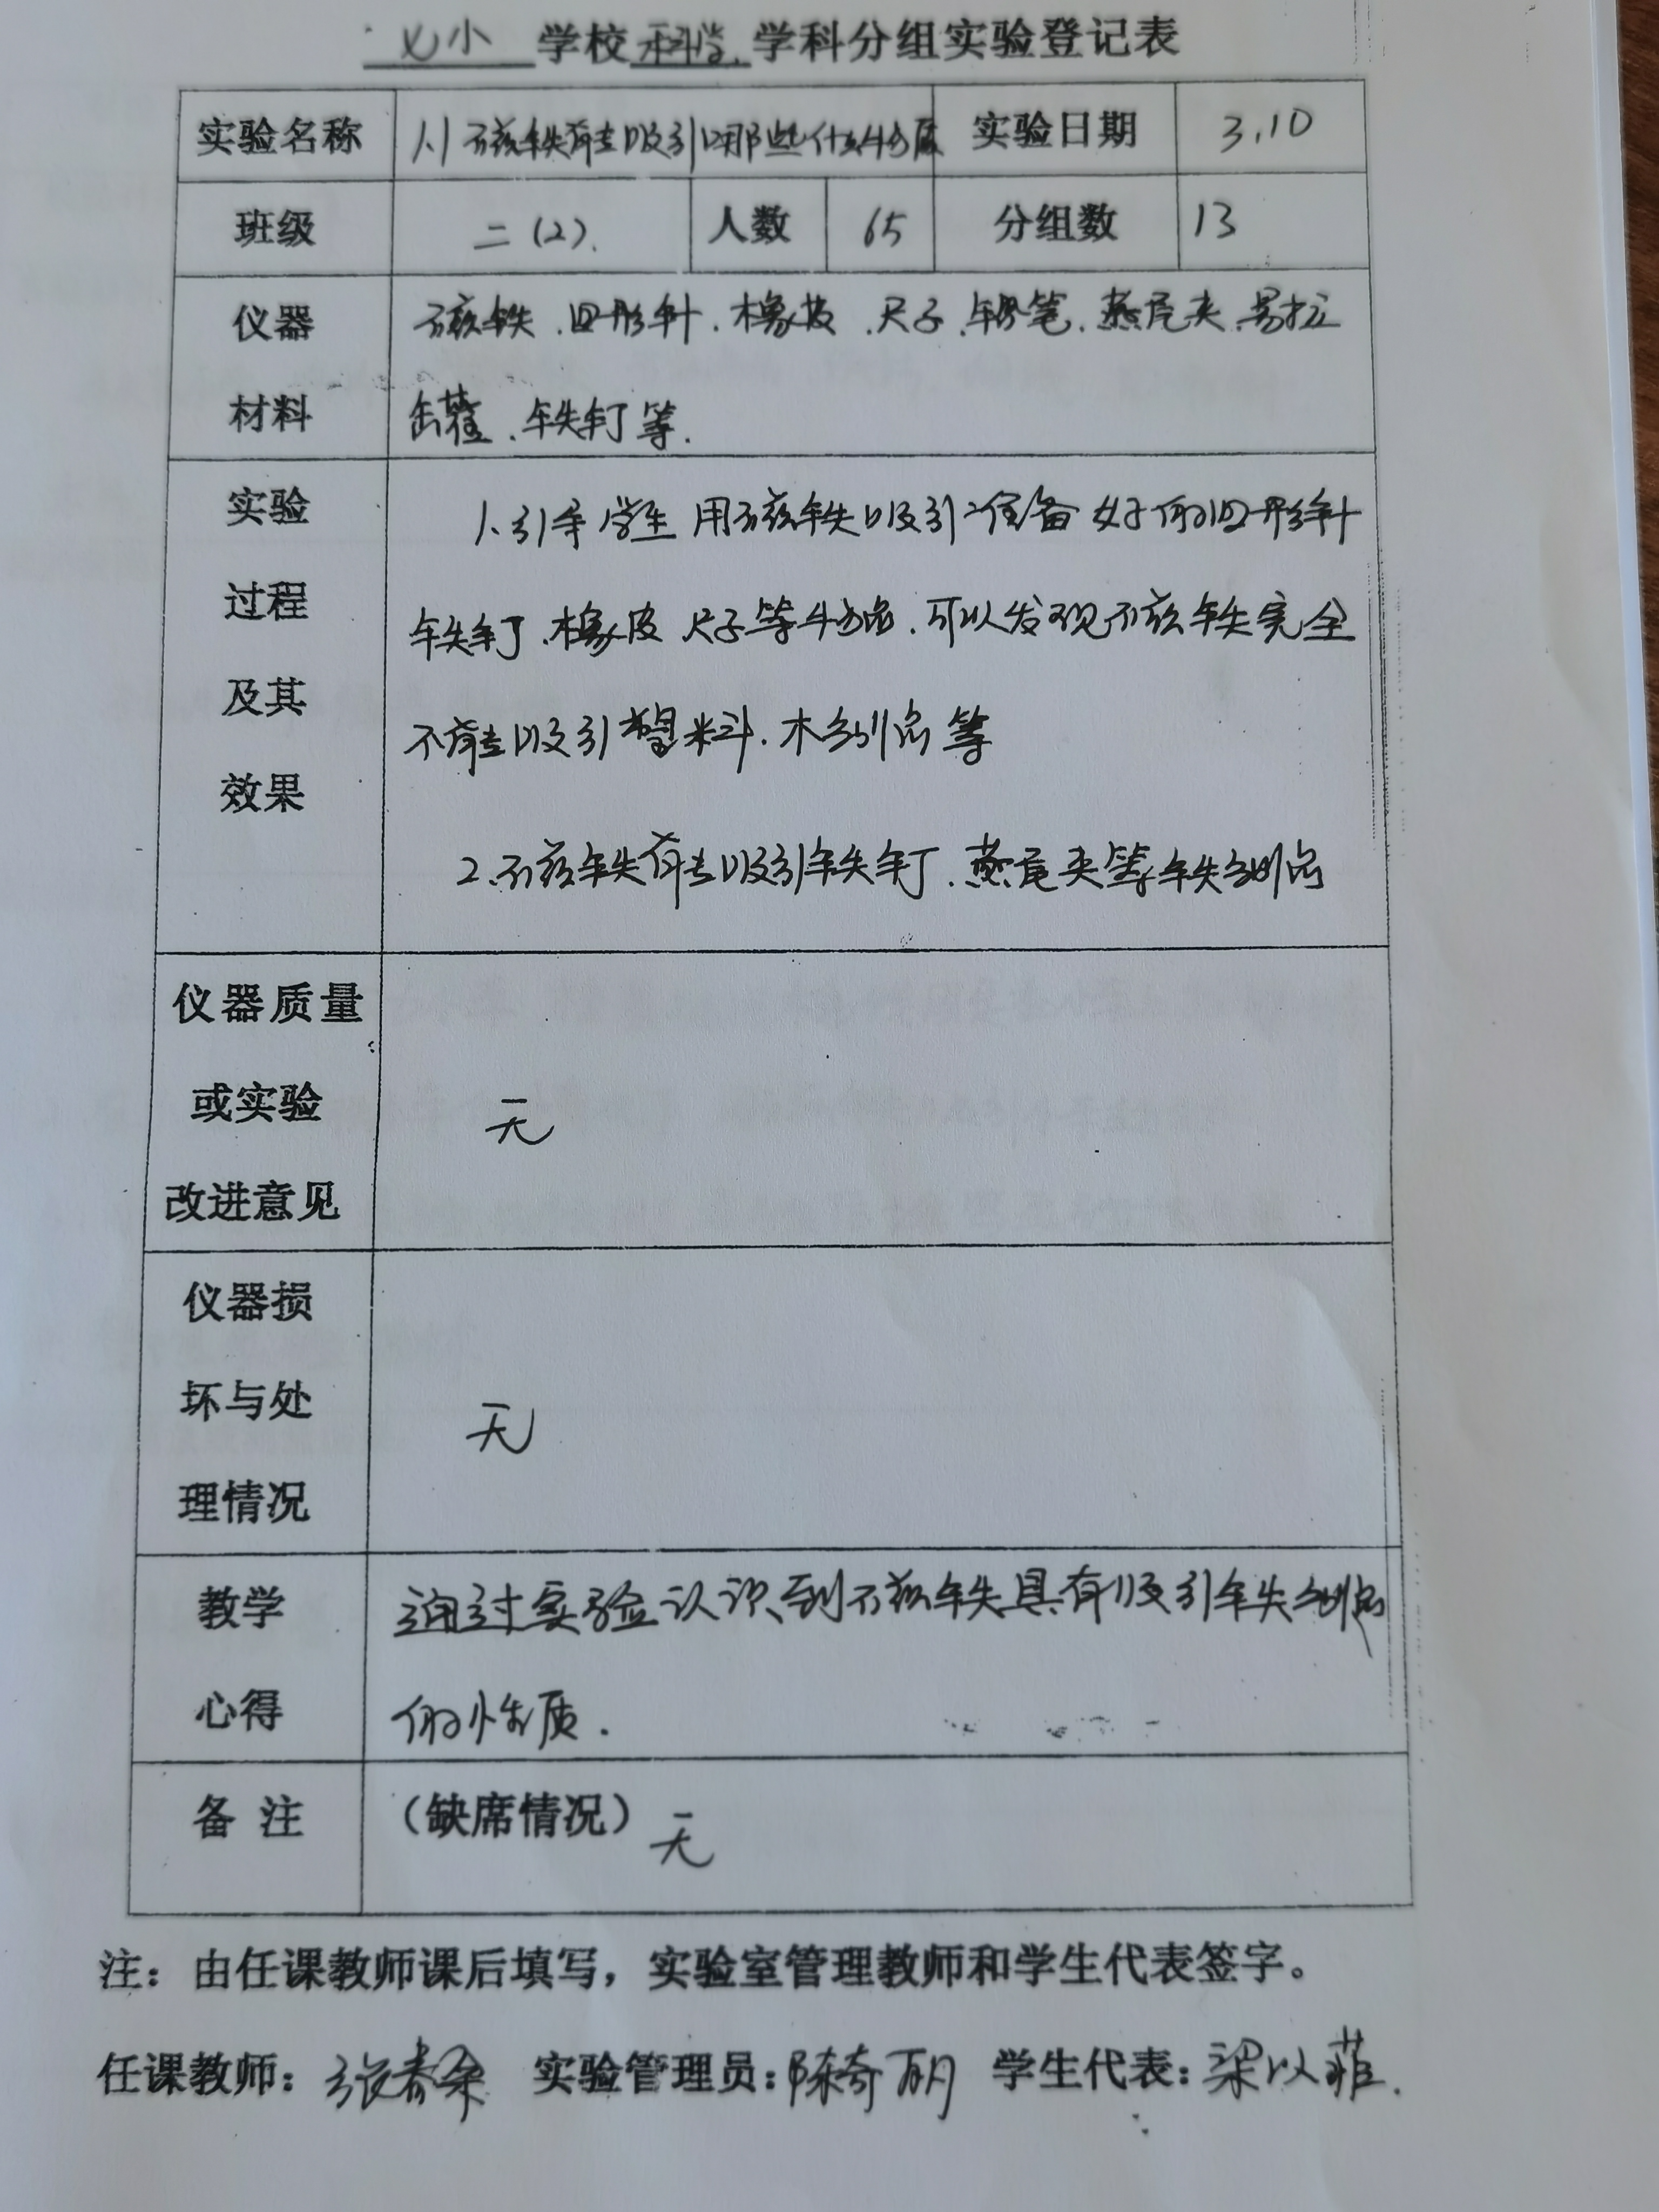 七小 学校 科学 学科分组实验登记表
实验名称 1.1磁铁能吸引哪些什么物质 实验日期 3.10
班级 二(2). 人数 65 分组数 13
仪器 磁铁、回形针、橡皮、尺子、钢笔、燕尾夹、易拉
材料 罐、铁钉等.
实验 1.引导学生用磁铁吸引准备好的回形针
过程 铁钉、橡皮 尺子等物品.可以发现磁铁完全
及其 不能吸引塑料.木制品等
效果
2.磁铁能吸引铁钉.燕尾夹等铁制品
仪器质量
或实验 无
改进意见
仪器损
坏与处 无
理情况
教学 通过实验认识到磁铁具有吸引铁制品
心得 的性质.
备 注 (缺席情况) 无
注：由任课教师课后填写，实验室管理教师和学生代表签字。
任课教师: 张春 实验管理员: 陈奇 学生代表: 梁以菲.